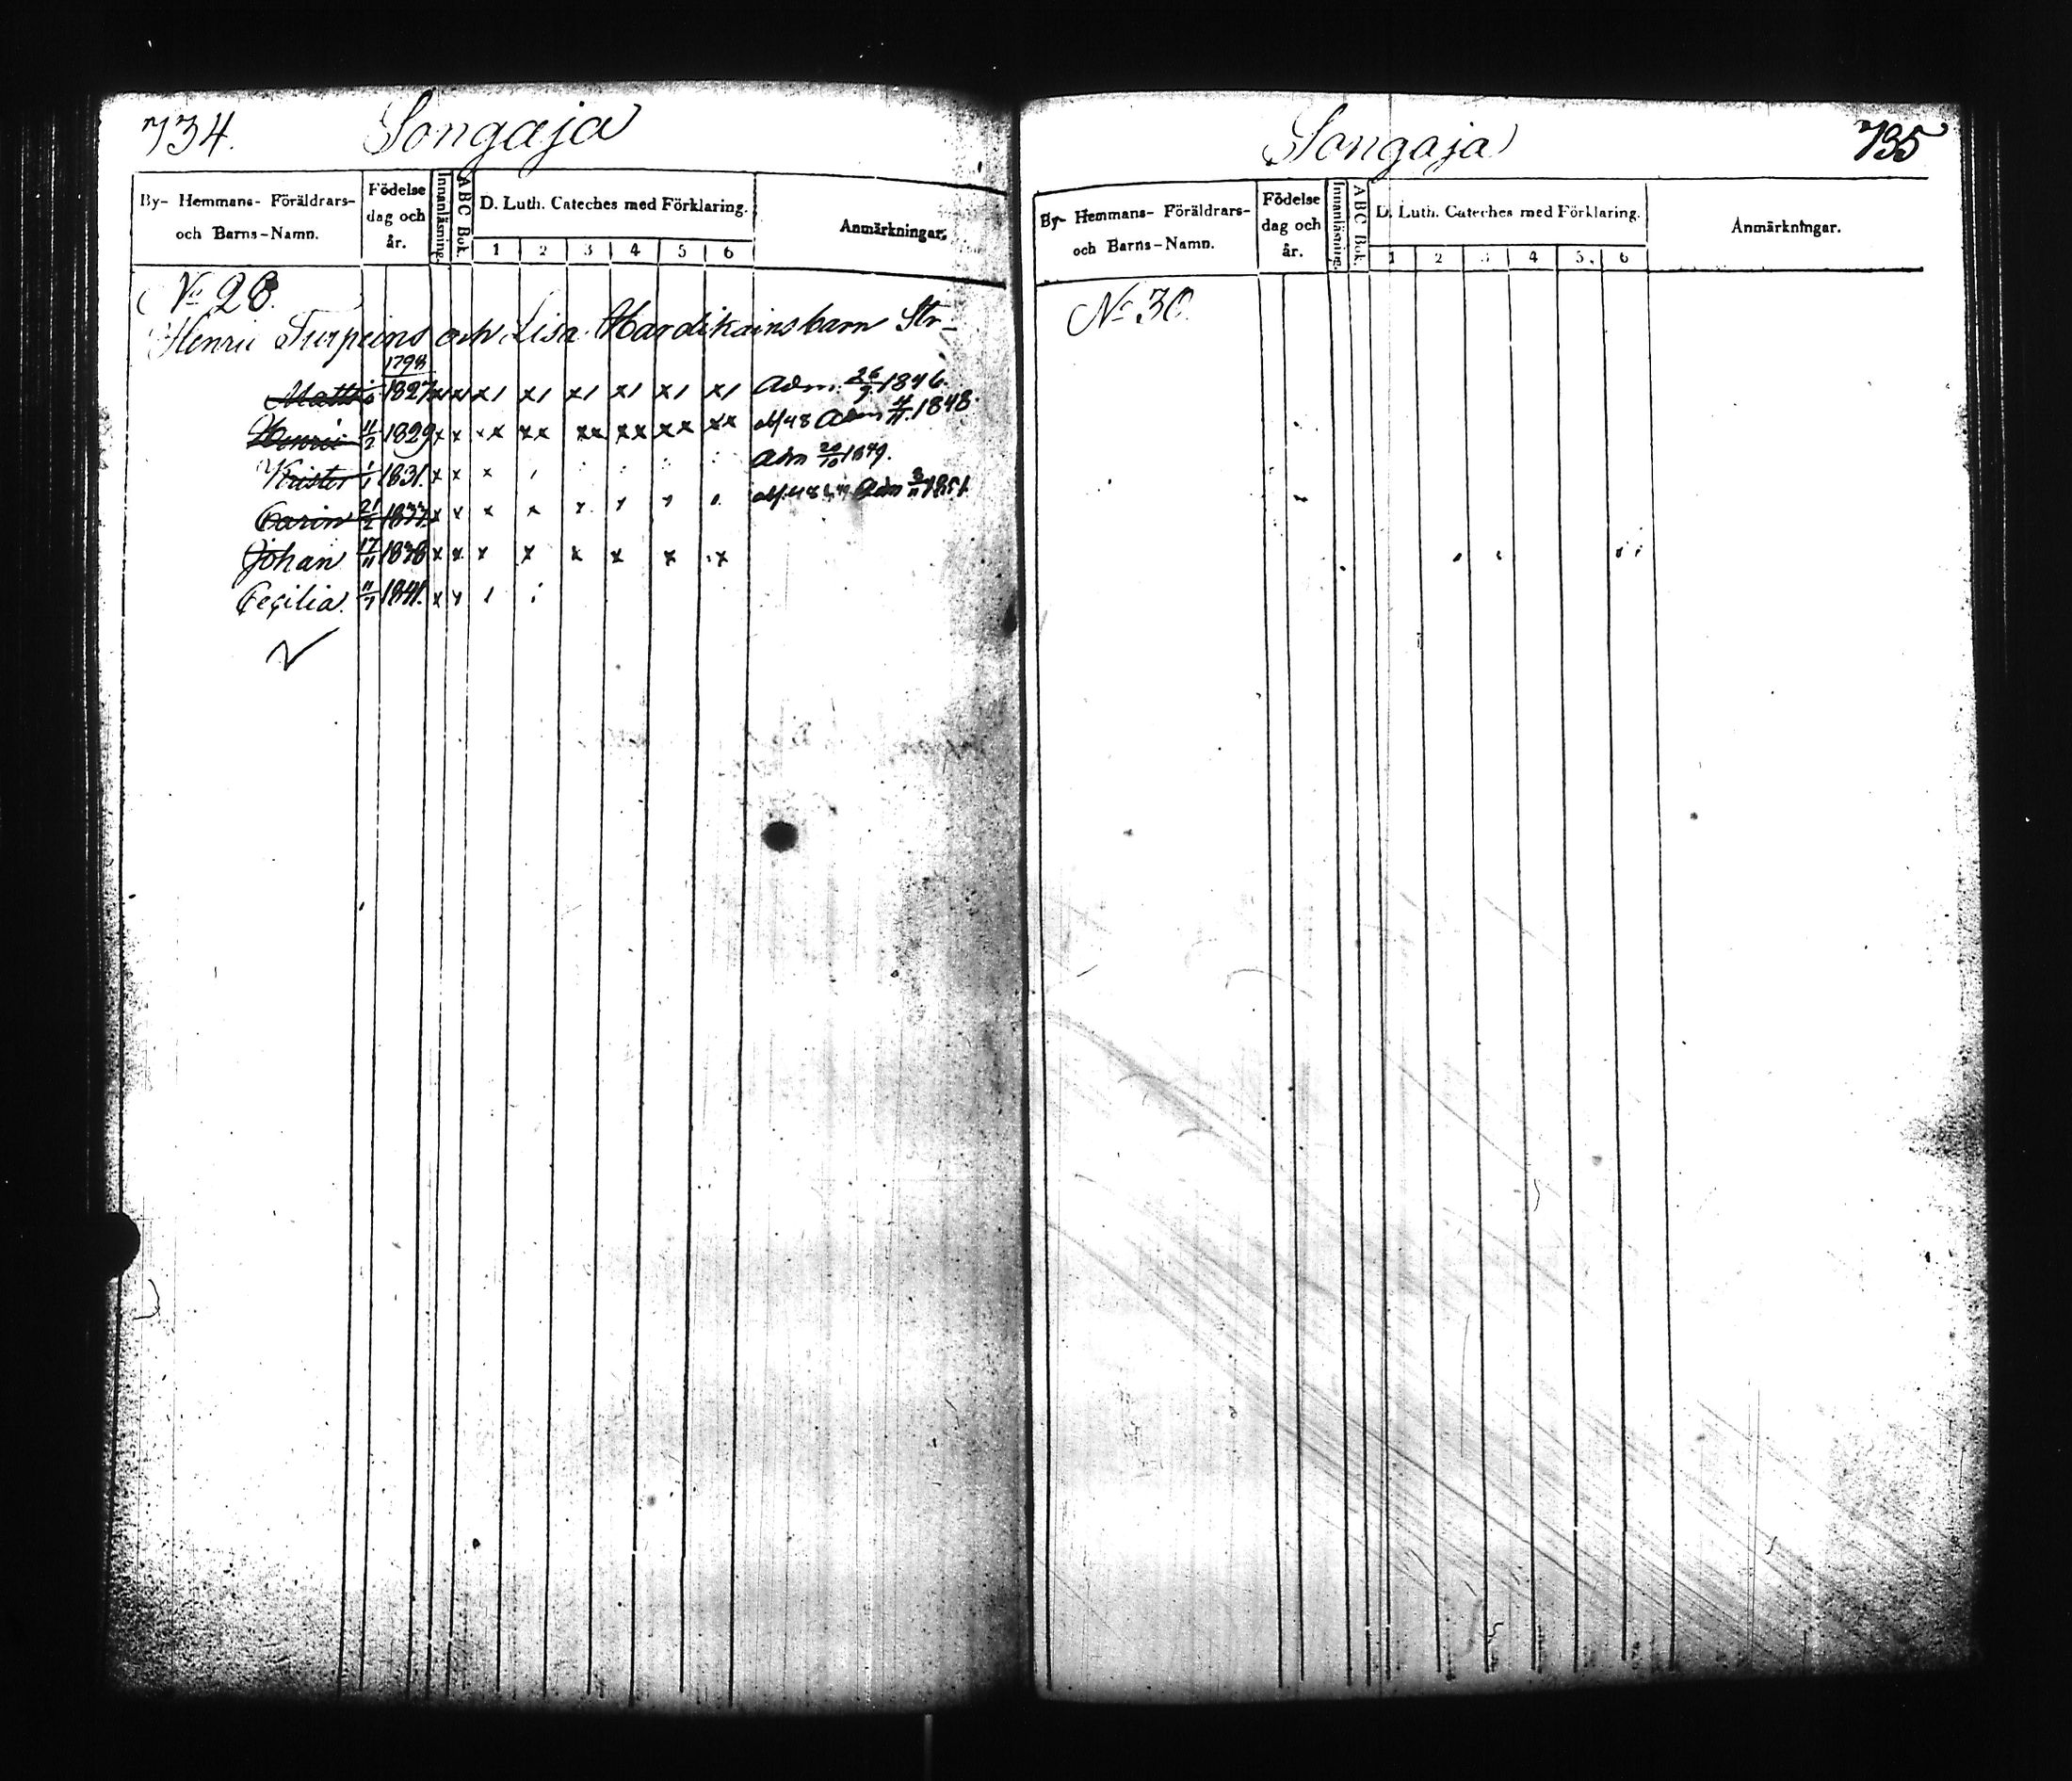 734. Songaja
By- Hemmans- Föräldrars- och Barns-Namn.
Födelse dag och år.
Innanläsning.
ABC Bok.
D. Luth. Cateches med Förklaring.
1 2 3 4 5 6
Anmärkningar.
No 28.
Henric Turpeins och Lisa Hardikains barn Str-
1798
Matths 1827 x x x/ x/ x/ x/ x/ x/ Adm. 26/9 1846.
Henric 11/2 1829 x x x x x x x x x x x x x x abs 48 Adm 4/11 1848.
Krister 1/1 1831. x x x Adm 20/10 1849.
Carin 21/2 1833 x x x x x Adm 3/11 1851
Johan 17/11 1838 x x x x x x x x
Cecilia. 11/7 1841. x x
Songaja 735
By- Hemmans- Föräldrars- och Barns-Namn.
Födelse dag och år.
Innanläsning.
ABC Bok.
D. Luth. Cateches med Förklaring.
1 2 3 4 5 6
Anmärkningar.
No 30.